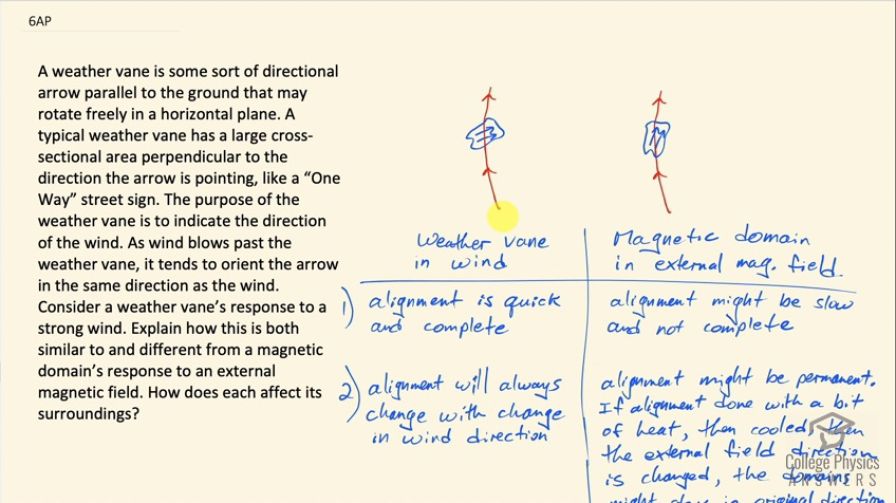 6AP
A weather vane is some sort of directional
arrow parallel to the ground that may
rotate freely in a horizontal plane. A
typical weather vane has a large cross-
sectional area perpendicular to the
direction the arrow is pointing, like a “One
Way” street sign. The purpose of the
weather vane is to indicate the direction
of the wind. As wind blows past the
weather vane, it tends to orient the arrow
in the same direction as the wind.
Consider a weather vane’s response to a
strong wind. Explain how this is both
similar to and different from a magnetic
domain’s response to an external
magnetic field. How does each affect its
surroundings?
Weather vane
in wind
Magnetic domain
in external mag. field.
1) alignment is quick
and complete
alignment might be slow
and not complete
2) alignment will always
change with change
in wind direction
alignment might be permanent.
If alignment done with a bit
of heat, then cooled, then
the external field direction
is changed, the domains
might stay in original direction
College Physics
ANSWERS